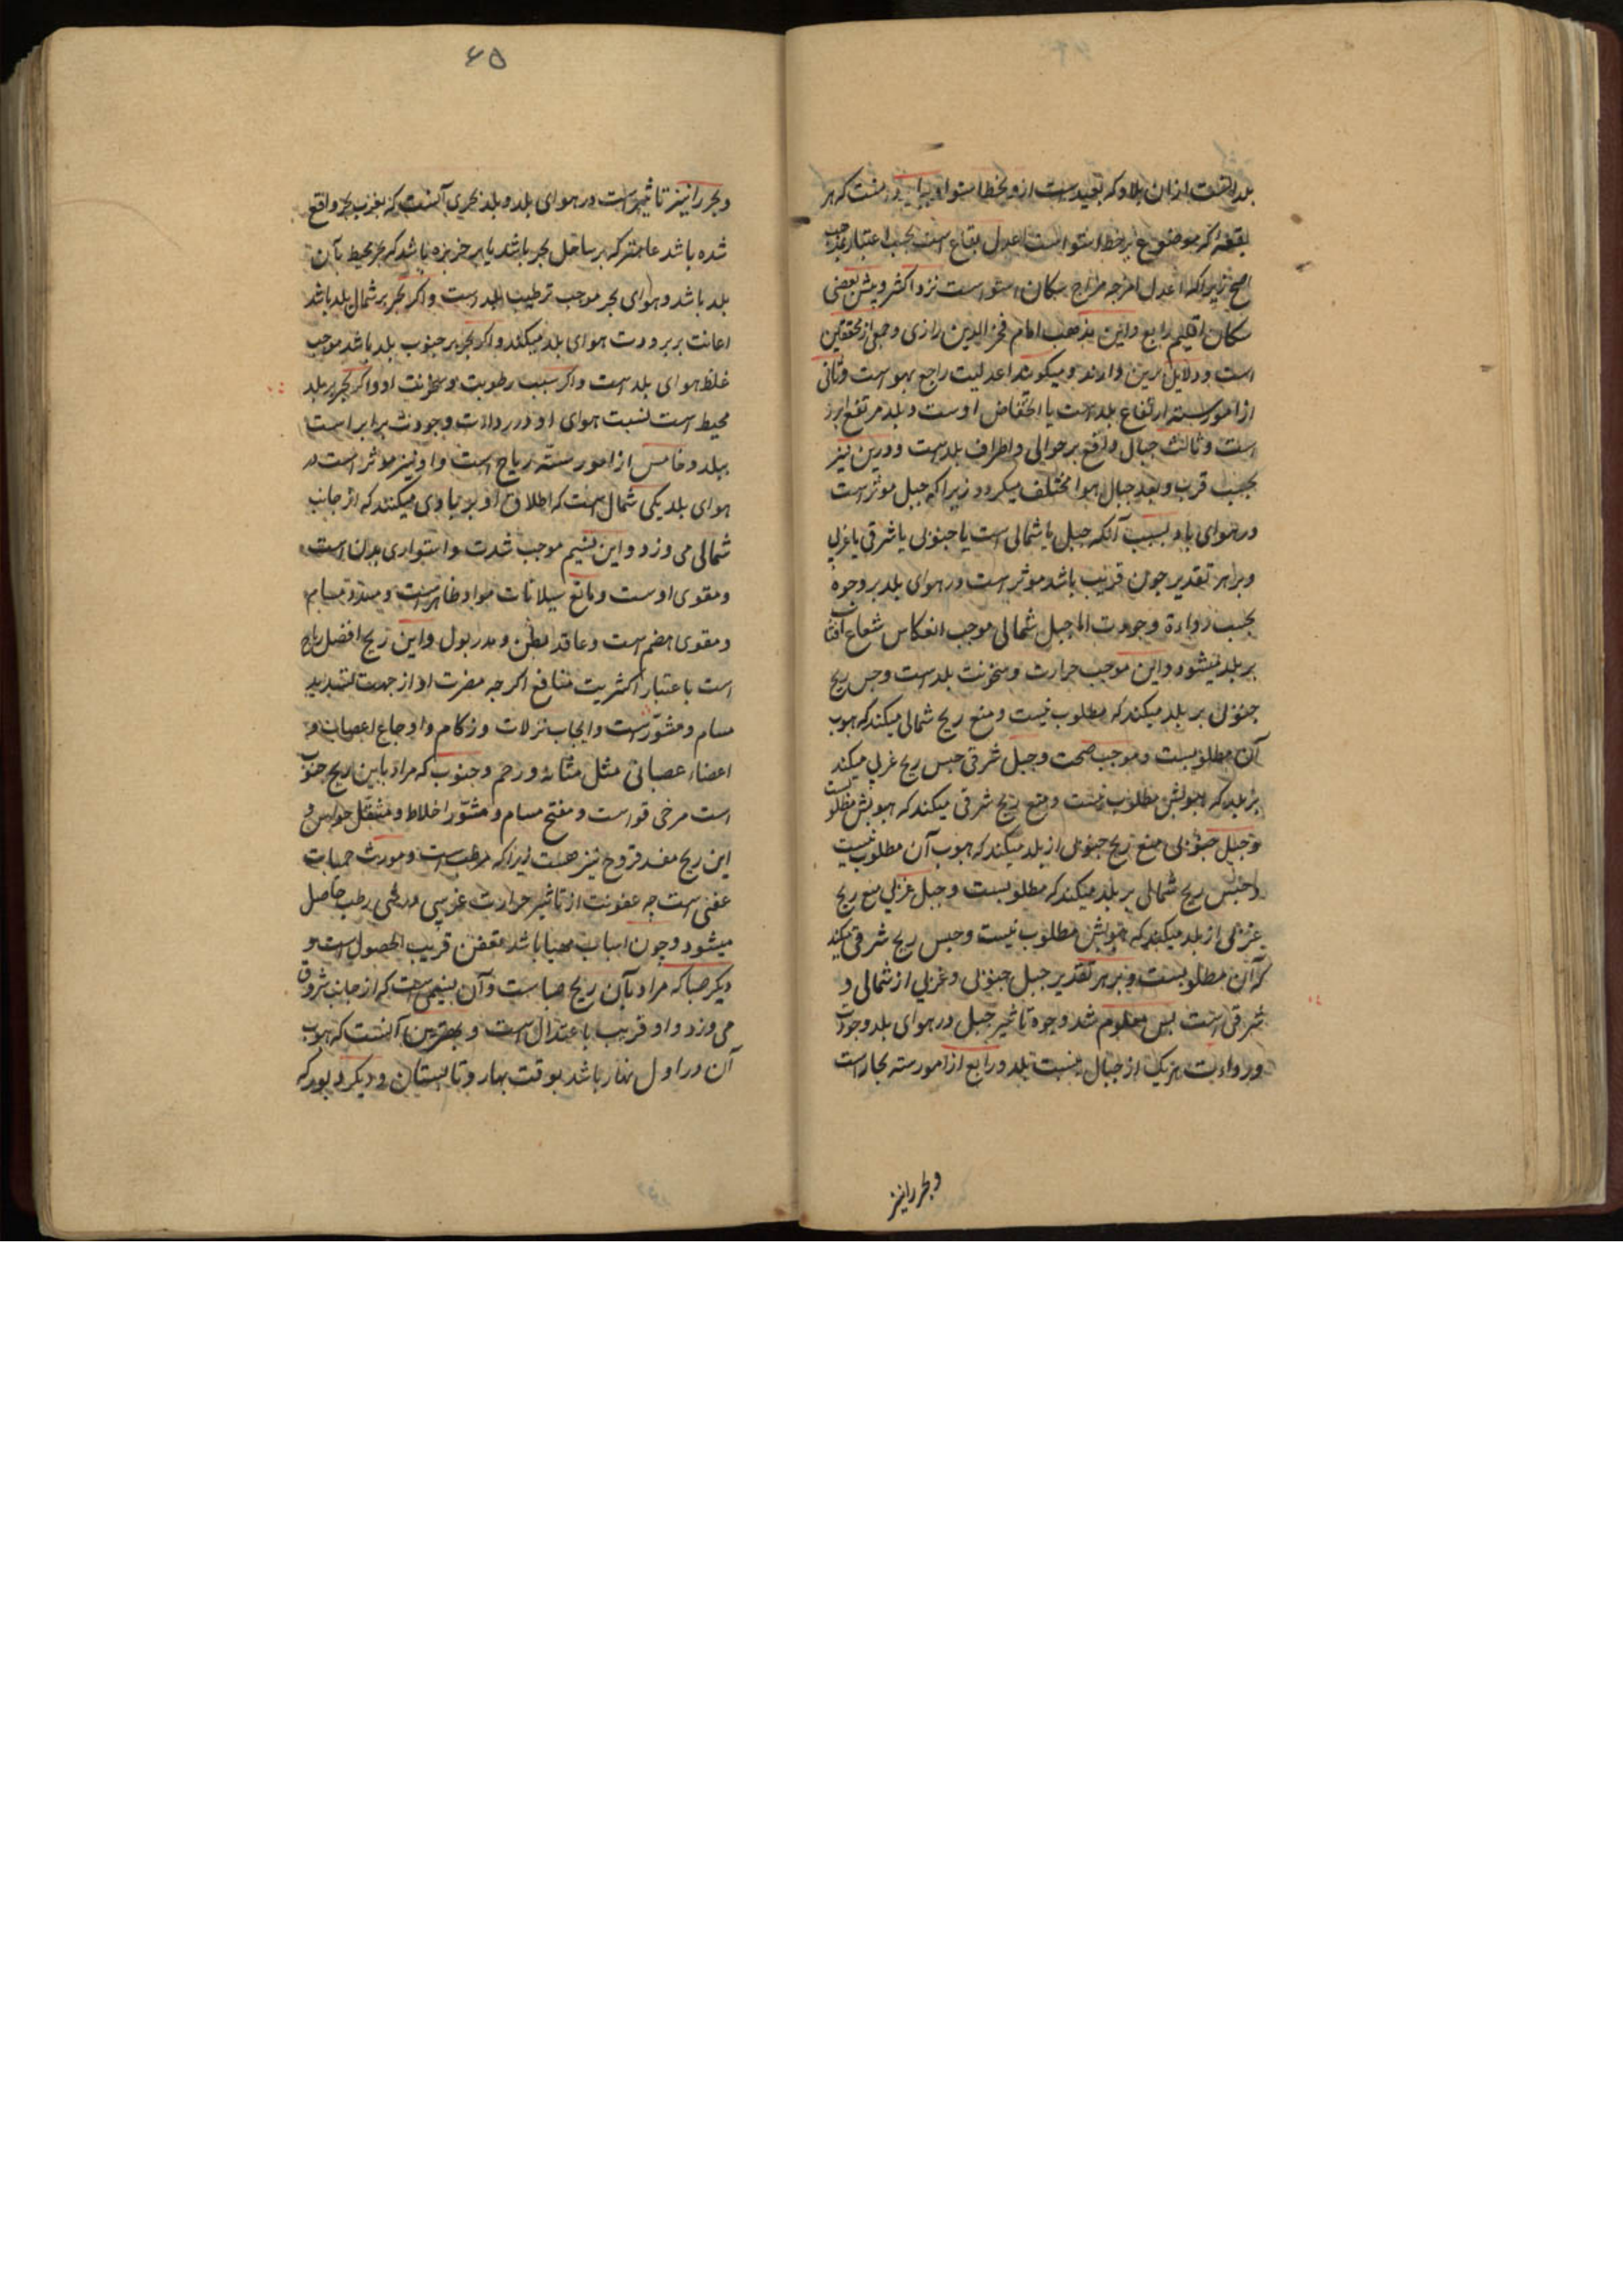 بلد است ازان بلاد که بعید است از و بخط استوا و بدانست که هر
بقعه اکر موضوع بر خط استوا است اعدل بقاع است بحسب اعتبار مذهب
اصح زیراکه اعدل امزجه مزاج سکان استواست نزد اکثر و پیش بعضی
سکان اقلیم رابع و این مذهب امام فخر الدین رازی و جمعی از محققین
است و دلایل برین دارند و میکویند اعدلیت راجع بهواست و ثانی
از امور سته ارتفاع بلد است یا انخفاض اوست و بلد مرتفع ابرد
است و ثالث جبال واقع بر حوالی و اطراف بلد است و درین نیز
بحسب قرب و بعد جبال هوا مختلف میکردد زیراکه جبل موثر است
در هوای بلد بسبب آنکه جبل یا شمالی است یا جنوبی یا شرقی یا غربی
و بر هر تقدیر چون قریب باشد موثر است در هوای بلد بر وجوه
بحسب رداءة و جودت اما جبل شمالی موجب انعکاس شعاع آفتاب
بر بلد میشود و این موجب حرارت و سخونت بلد است و حبس ریح
جنوبی بر بلد میکند که مطلوب نیست و منع ریح شمالی میکند که هبوب
آن مطلوبست و موجب صحت و جبل شرقی حبس ریح غربی میکند
بر بلد که هبوبش مطلوب نیست و منع ریح شرقی میکند که هبوبش مطلوبست
و جبل جنوبی منع ریح جنوبی از بلد میکند که هبوب آن مطلوب نیست
و حبس ریح شمالی بر بلد میکند که مطلوبست و جبل غربی منع ریح
غربی از بلد میکند که هبوبش مطلوب نیست و حبس ریح شرقی میکند
که آن مطلوبست و بر هر تقدیر جبل جنوبی و غربی از شمالی و
شرقی است پس معلوم شد وجوه تاثیر جبل در هوای بلد وجودت
و رداءت هر یک از جبال بنسبت بلد و رابع از امور سته بحار است
و بحر را نیز
۶۵
و بحر را نیز تاثیر است در هوای بلد و بلد بحری آنست که بقرب بحر واقع
شده باشد عامتر که بر ساحل بحر باشد یا بر جزیره باشد که بحر محیط بآن
بلد باشد و هوای بحر موجب ترطیب بلد است و اکر بحر بر شمال بلد باشد
اعانت بر برودت هوای بلد میکند و اکر بحر بر جنوب بلد باشد موجب
غلظ هوای بلد است و اکر سبب رطوبت و سخونت او و اکر بحر بر بلد
محیط است نسبت هوای او در رداءت وجودت برابر است
ببلد و خامس از امور سته ریاح است و او نیز موثر است در
هوای بلد یکی شمال است که اطلاق او بر بادی میکنند که از جانب
شمالی می وزد و این نسیم موجب شدت و استواری بدن است
و مقوی اوست و مانع سیلانات مواد ظاهر است و مسدد مسام
و مقوی هضم است و عاقد بطن و مدر بول و این ریح افضل ریاح
است باعتبار اکثریت منافع اکرچه مضرت او از جهت تسدید
مسام و مشوّر است و ایجاب نزلات و زکام و اوجاع اعصاب و
اعضاء عصبانی مثل مثانه و رحم و جنوب که مراد باین ریح جنوب
است مرخی قواست و مفتح مسام و مشوّر اخلاط و مثقل حواس و
این ریح مفسد قروح نیز هست زیراکه مرطب است و مورث حمیات
عفنی است چه عفونت از تاثیر حرارت غریبی در شی رطب حاصل
میشود و چون اسباب مهیا باشد تعفن قریب الحصول است و
دیکر صبا که مراد بآن ریح صباست و آن نسیمی است که از جانب شروق
می وزد و او قریب باعتدال است و بهترین آنست که هبوب
آن در اول نهار باشد بوقت بهار و تابستان و دیکر دبور که